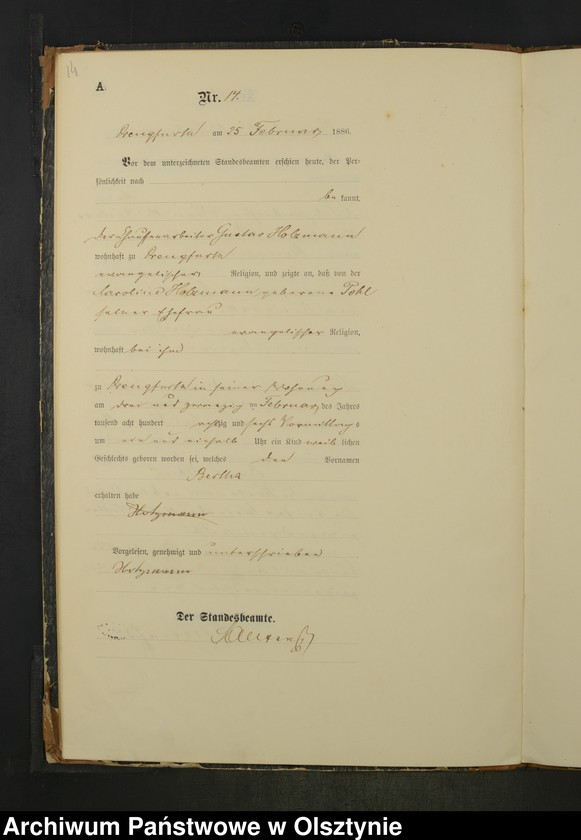 14
A.
Nr. 14.
Drengfurth am 25 Februar 1886.
Vor dem unterzeichneten Standesbeamten erschien heute, der Per-
sönlichkeit nach
be kannt,
der Gustav Holzmann
wohnhaft zu Drengfurth
evangelischer Religion, und zeigte an, daß von der
Caroline Holzmann geborene Pohl
seiner Ehefrau
evangelischer Religion,
wohnhaft bei ihm
zu Drengfurth in seiner Wohnung
am drei und zwanzig ten Februar des Jahres
tausend acht hundert achtzig und sechs Vormittags
um ein und einhalb Uhr ein Kind weib lichen
Geschlechts geboren worden sei, welches den Vornamen
Bertha
erhalten habe
Vorgelesen, genehmigt und unterschrieben
Der Standesbeamte.
Archiwum Państwowe w Olsztynie